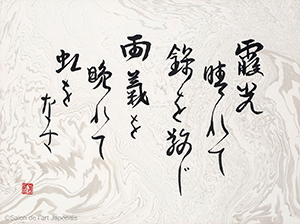 霞光
晴れて
錦を
雨
晩れて
虹を
なす
©Salon de l'art Japonais